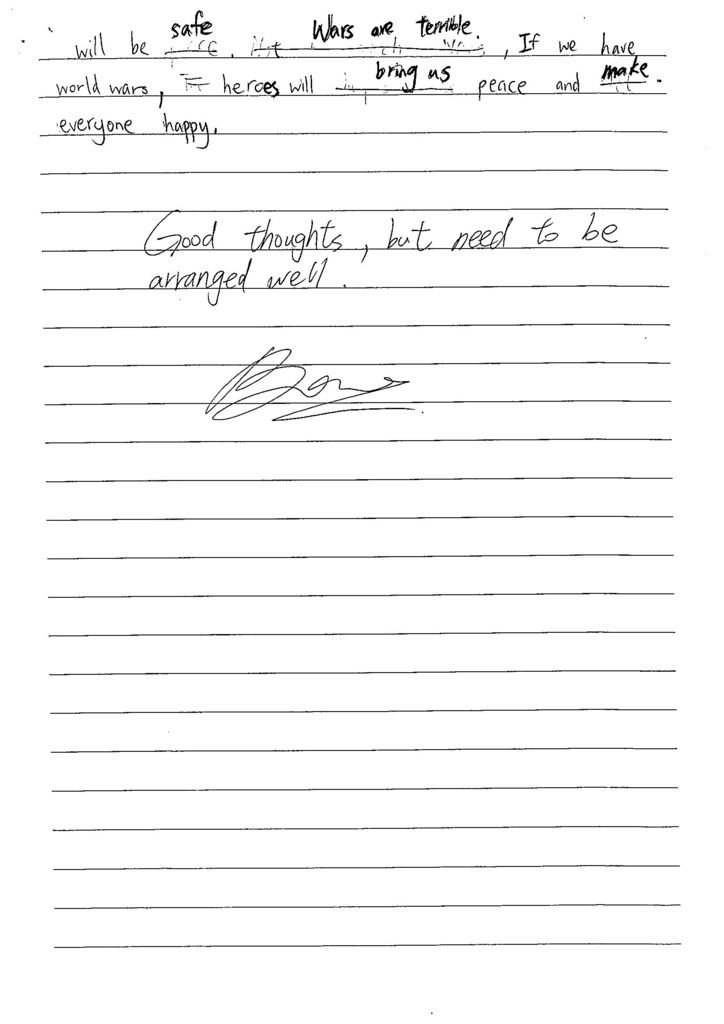 will be safe. Wars are terrible. , If we have
world wars, heroes will bring us peace and make.
everyone happy.
Good thoughts, but need to be
arranged well.